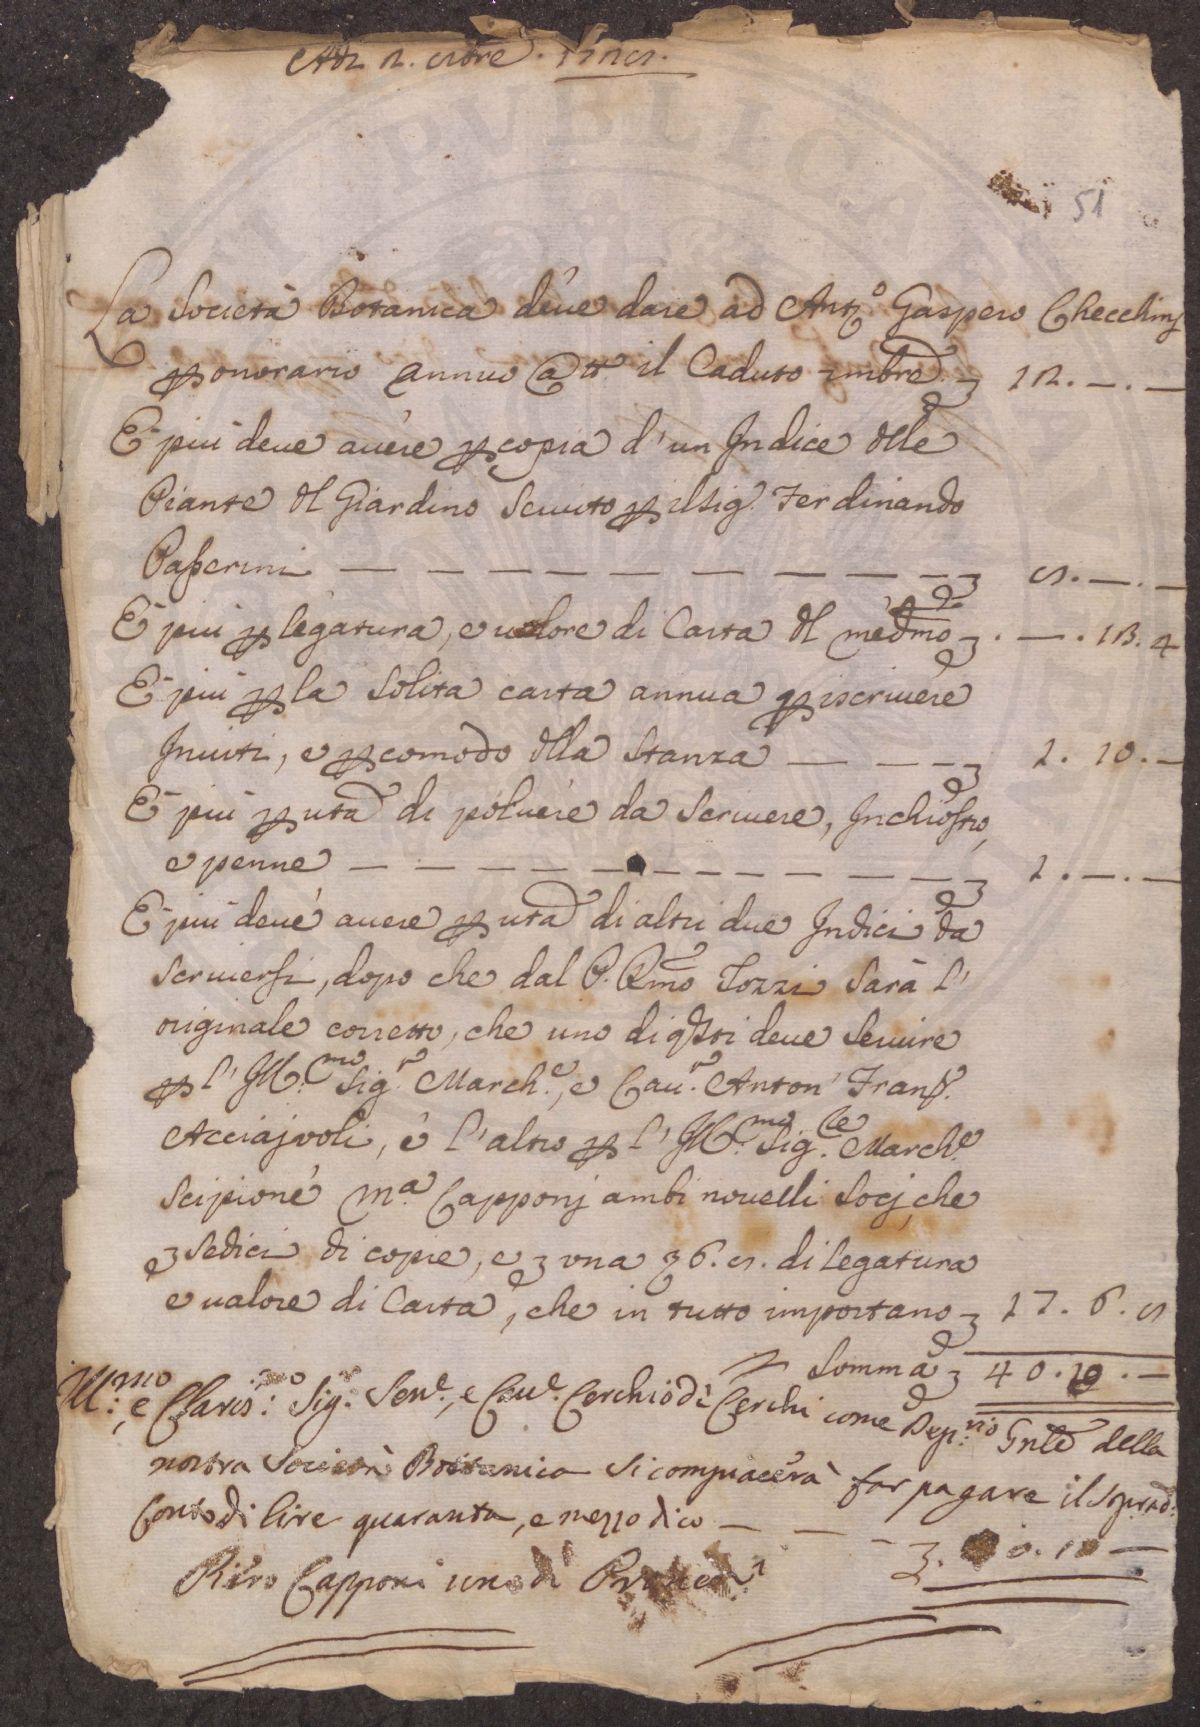 Adi 2. 8bre. 1728.
51
La Società Botanica deue dare ad Ant.o Gaspero Checchinj
p onorario annuo a tt.o il Caduto 7mbre £ 12. —. —
E più deue auere p copia d'un Indice dlle
Piante dl Giardino seruito p il Sig. Ferdinando
Passerini — — — — — — — — £ 8. —. —
E più p legatura, e ualore di Carta dl medmo £. —. 13. 4
E più p la solita carta annua p iscriuere
Inuiti, e p comodo dlla Stanza — — — £ 1. 10. —
E più p uta di poluere da scriuere, Inchiostro,
e penne — — — — — — — — £ 1. —. —
E più deue auere p uta di altri due Indici da
scriuersi, dopo che dal P. Rmo Tozzi sarà l'
originale corretto, che uno di qsti deue seruire
p l'Ill.mo Sig.r March.e, e Cau.r Anton' Fran.
Acciajuoli, e l'altro p l'Ill.mo Sig.re March.e
Scipione M.a Capponj ambi nouelli Socj, che
£ sedici di copie, e £ una £ 6. 8. di legatura
e ualore di Carta, che in tutto importano £ 17. 6. 8
Somma £ 40. 10. —
Ill.mo, e Claris.mo Sig.r Sen.e, e Cau.e Cerchio di Cerchi come Dep.rio Gnle della
nostra Società Bottanica si compiacerà far pagare il soprad.
Conto di lire quaranta, e mezzo dico — — — £. 40. 10 —
Piero Capponi uno di